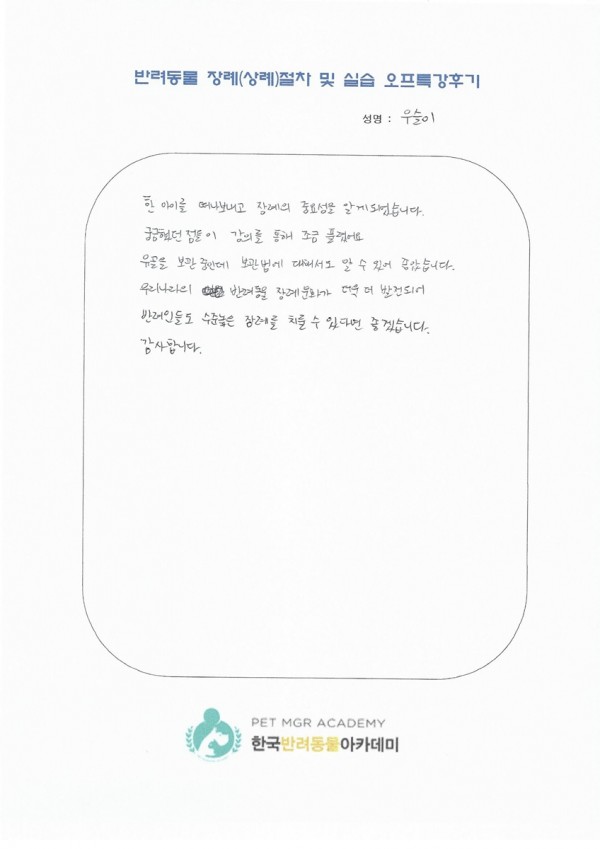 반려동물 장례(상례)절차 및 실습 오프특강후기
성명 : 우슬이
한 아이를 떠나보내고 장례의 중요성을 알게되었습니다.
궁금했던 점들이 강의를 통해 조금 풀렸어요
유골을 보관 중인데 보관법에 대해서도 알 수 있어 좋았습니다.
우리나라의 반려동물 장례문화가 더욱 더 발전되어
반려인들도 수준높은 장례를 치룰 수 있다면 좋겠습니다.
감사합니다.
PET MGR ACADEMY
한국반려동물아카데미